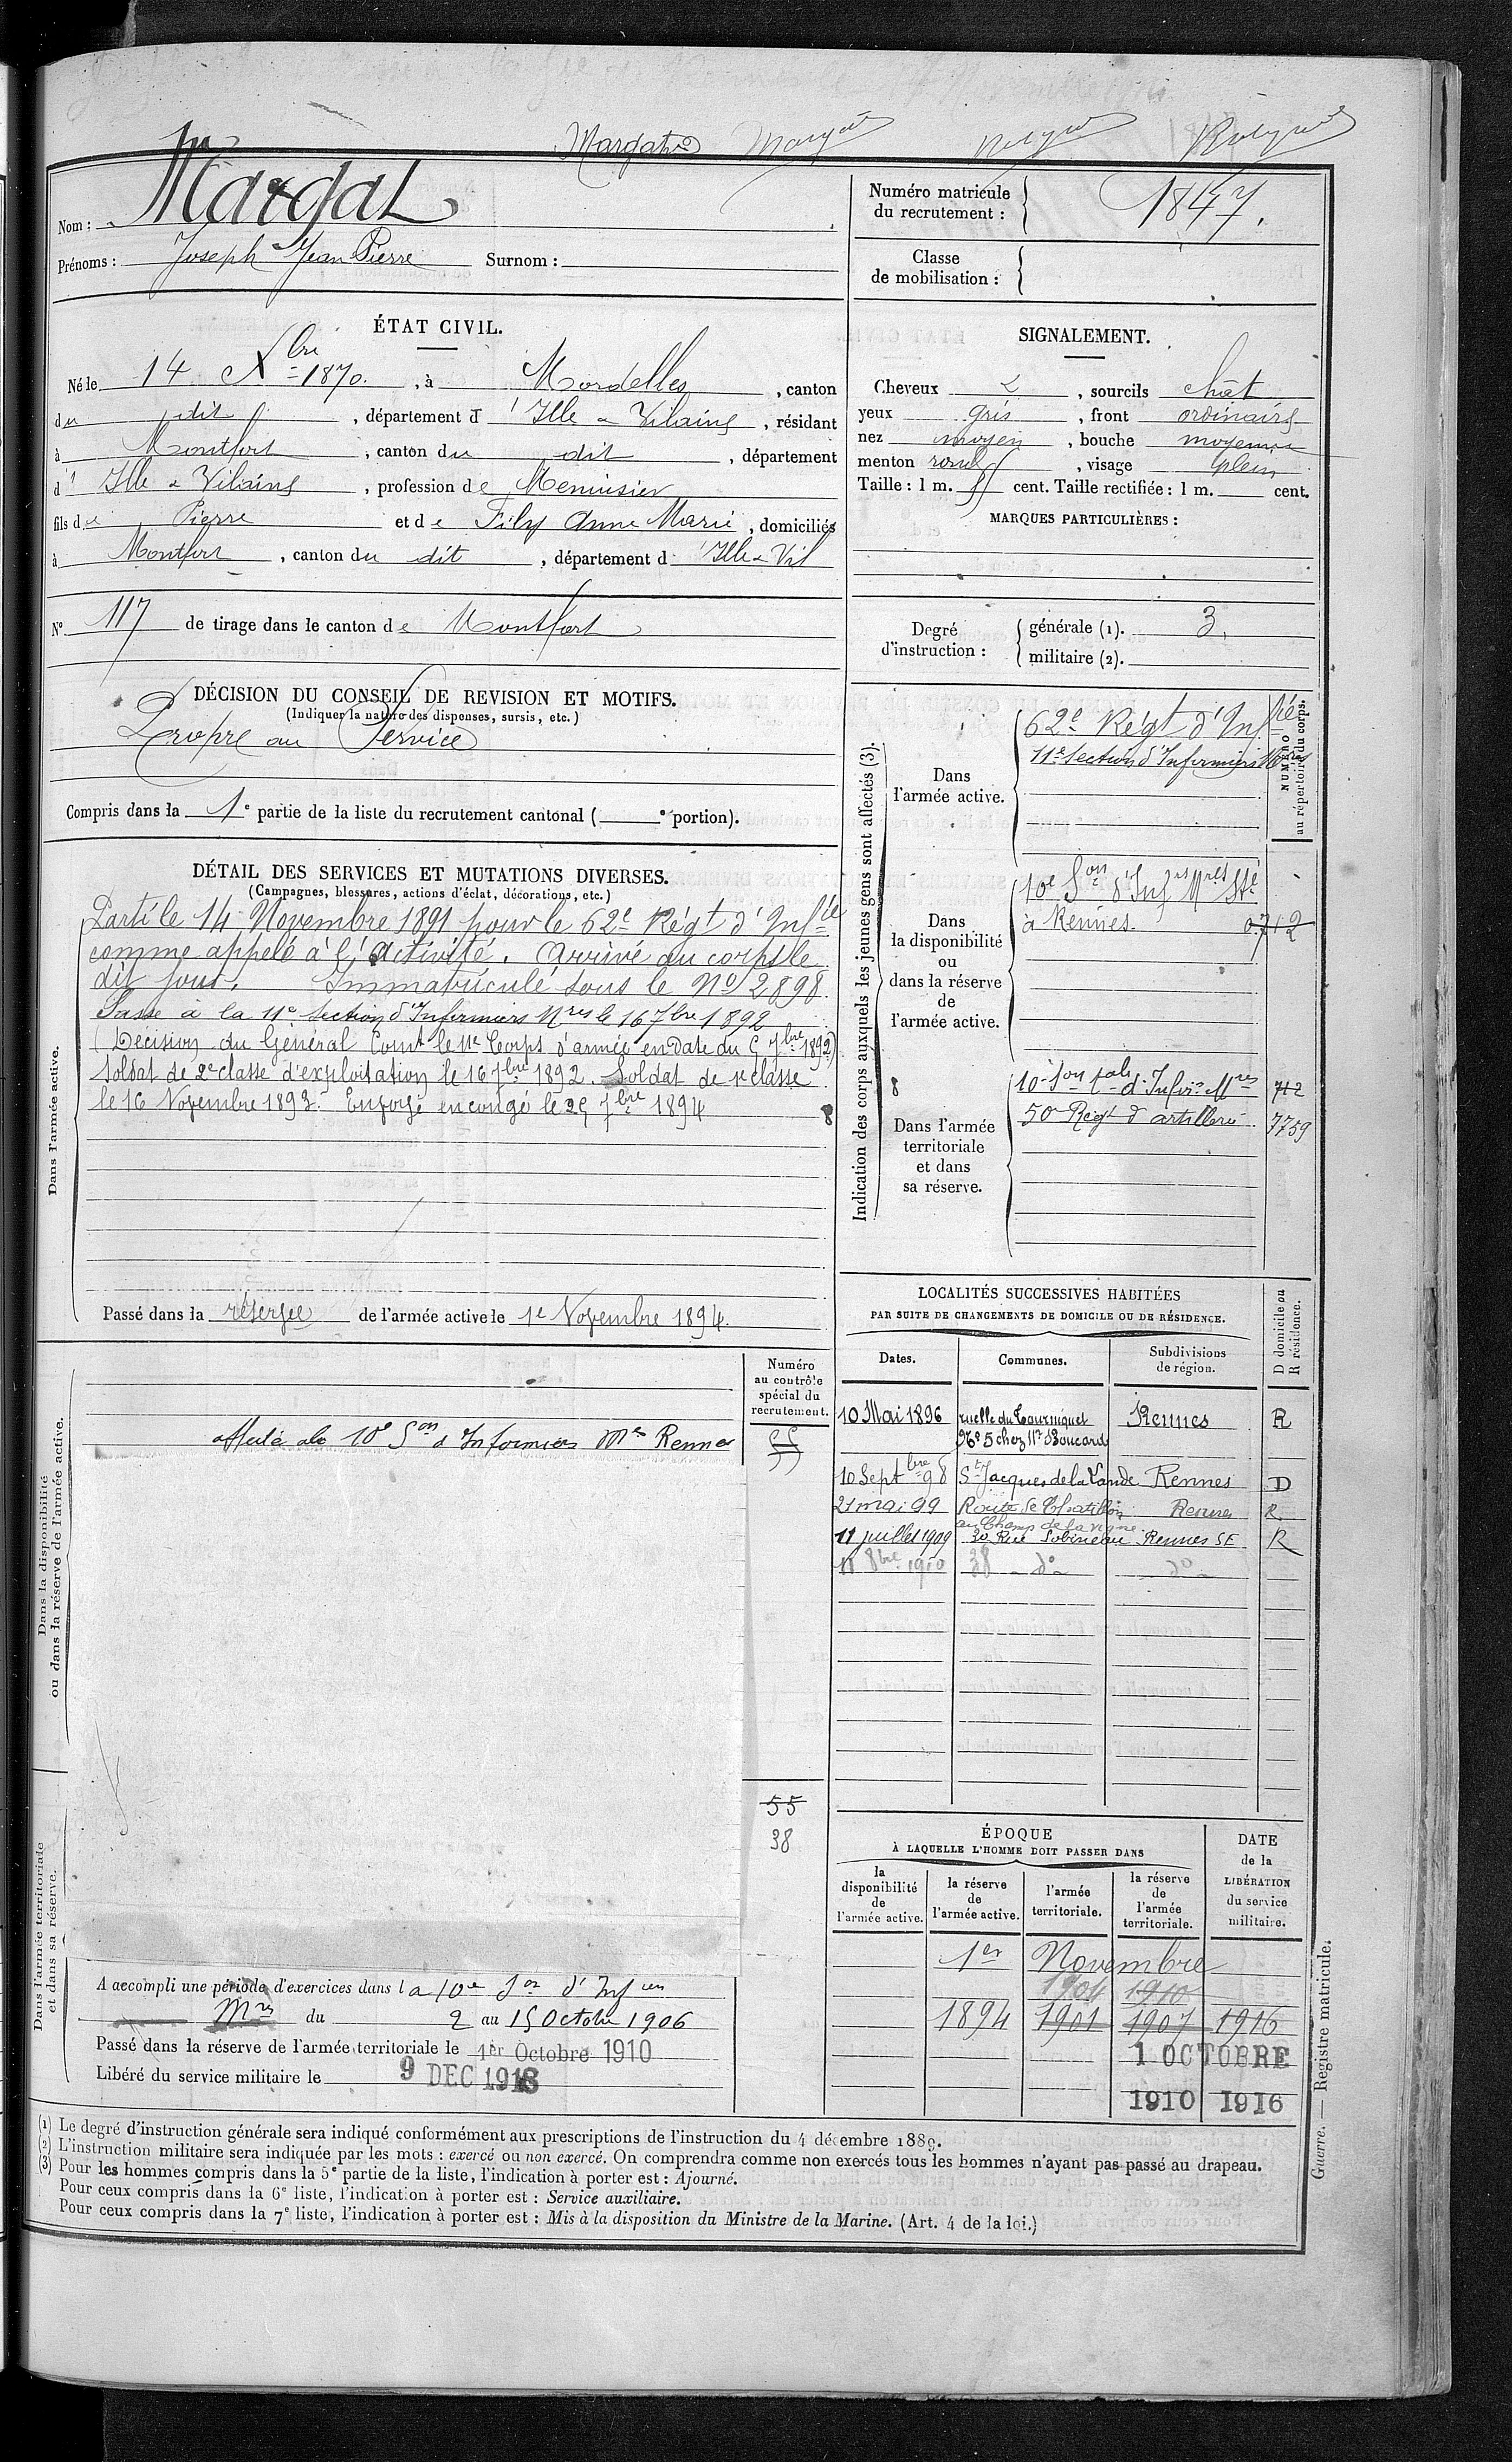 Margat
Nom : Margat
Prénoms : Joseph Jean Pierre Surnom :
Numéro matricule
du recrutement : 1847.
Classe
de mobilisation :
ÉTAT CIVIL.
Né le 14 Xbre 1870. , à Mordelles , canton
du dit , département d'Ille & Vilaine , résidant
à Montfort , canton du dit , département
d'Ille & Vilaine , profession de Menuisier
fils de Pierre et de Fily Anne Marie , domiciliés
à Montfort , canton du dit , département d Ille & Vil
N° 117 de tirage dans le canton de Montfort
SIGNALEMENT.
Cheveux , sourcils chât
yeux gris , front ordinaire
nez moyen , bouche moyenne
menton rond , visage plein
Taille : 1 m. 55 cent. Taille rectifiée : 1 m. cent.
MARQUES PARTICULIÈRES :
Degré
d'instruction :
générale (1). 3.
militaire (2).
DÉCISION DU CONSEIL DE REVISION ET MOTIFS.
(Indiquer la nature des dispenses, sursis, etc.)
Propre au Service
Compris dans la 1e partie de la liste du recrutement cantonal ( e portion).
DÉTAIL DES SERVICES ET MUTATIONS DIVERSES.
(Campagnes, blessures, actions d'éclat, décorations, etc.)
Dans l'armée active.
Parti le 14 Novembre 1891 pour le 62e Régt d'Infie
comme appelé à l'activité. Arrivé au corps le
dit jour. Immatriculé sous le No 2898.
Passé à la 11e Section d'Infirmiers Mres le 16 7bre 1892
(Décision du Général Comt le 11e Corps d'armée en date du 5 7bre 1892)
Soldat de 2e classe d'exploitation le 16 7bre 1892. Soldat de 1e classe
le 16 Novembre 1893. Envoyé en congé le 25 7bre 1894
Passé dans la réserve de l'armée active le 1e Novembre 1894.
Indication des corps auxquels les jeunes gens sont affectés (3).
NUMÉRO
au répertoire du corps.
Dans
l'armée active.
62e Régt d'Infrie
11e Section d'Infirmiers Mres
Dans
la disponibilité
ou
dans la réserve
de
l'armée active.
10e Son d'Infiers Mres Sté
à Rennes. 0.712
8
Dans l'armée
territoriale
et dans
sa réserve.
10e Son tale d'Infirs Mres 712
50e Régt d'artillerie. 7759
Dans la disponibilité
ou dans la réserve de l'armée active.
Numéro
au contrôle
spécial du
recrutement.
affecté à la 10e Son d'Infirmiers Mres Rennes
55
Dans l'armée territoriale
et dans sa réserve.
55
38
A accompli une période d'exercices dans la 10e Son d'Infiers
Mres du 2 au 15 Octobre 1906
Passé dans la réserve de l'armée territoriale le 1er Octobre 1910
Libéré du service militaire le 9 DEC 1918
LOCALITÉS SUCCESSIVES HABITÉES
PAR SUITE DE CHANGEMENTS DE DOMICILE OU DE RÉSIDENCE.
D domicile ou
R résidence.
Dates. Communes. Subdivisions
de région.
10 Mai 1896 ruelle du Tourniquet Rennes R
No 5 chez Mr Boucard
10 Septbre 98 St Jacques de la Lande Rennes D
21 mai 99 Route de Chatillon Rennes R.
au Champ de la vigne
11 juillet 1909 30 Rue Lobineau Rennes SE R
11 8bre 1910 38 do do
ÉPOQUE
À LAQUELLE L'HOMME DOIT PASSER DANS
DATE
de la
LIBÉRATION
du service
militaire.
la
disponibilité
de
l'armée active.
la réserve
de
l'armée active.
l'armée
territoriale.
la réserve
de
l'armée
territoriale.
1er Novembre
1904 1910
1894 1901 1907 1916
1 OCTOBRE
1910 1916
Guerre. — Registre matricule.
(1) Le degré d'instruction générale sera indiqué conformément aux prescriptions de l'instruction du 4 décembre 1889.
(2) L'instruction militaire sera indiquée par les mots : exercé ou non exercé. On comprendra comme non exercés tous les hommes n'ayant pas passé au drapeau.
(3) Pour les hommes compris dans la 5e partie de la liste, l'indication à porter est : Ajourné.
Pour ceux compris dans la 6e liste, l'indication à porter est : Service auxiliaire.
Pour ceux compris dans la 7e liste, l'indication à porter est : Mis à la disposition du Ministre de la Marine. (Art. 4 de la loi.)